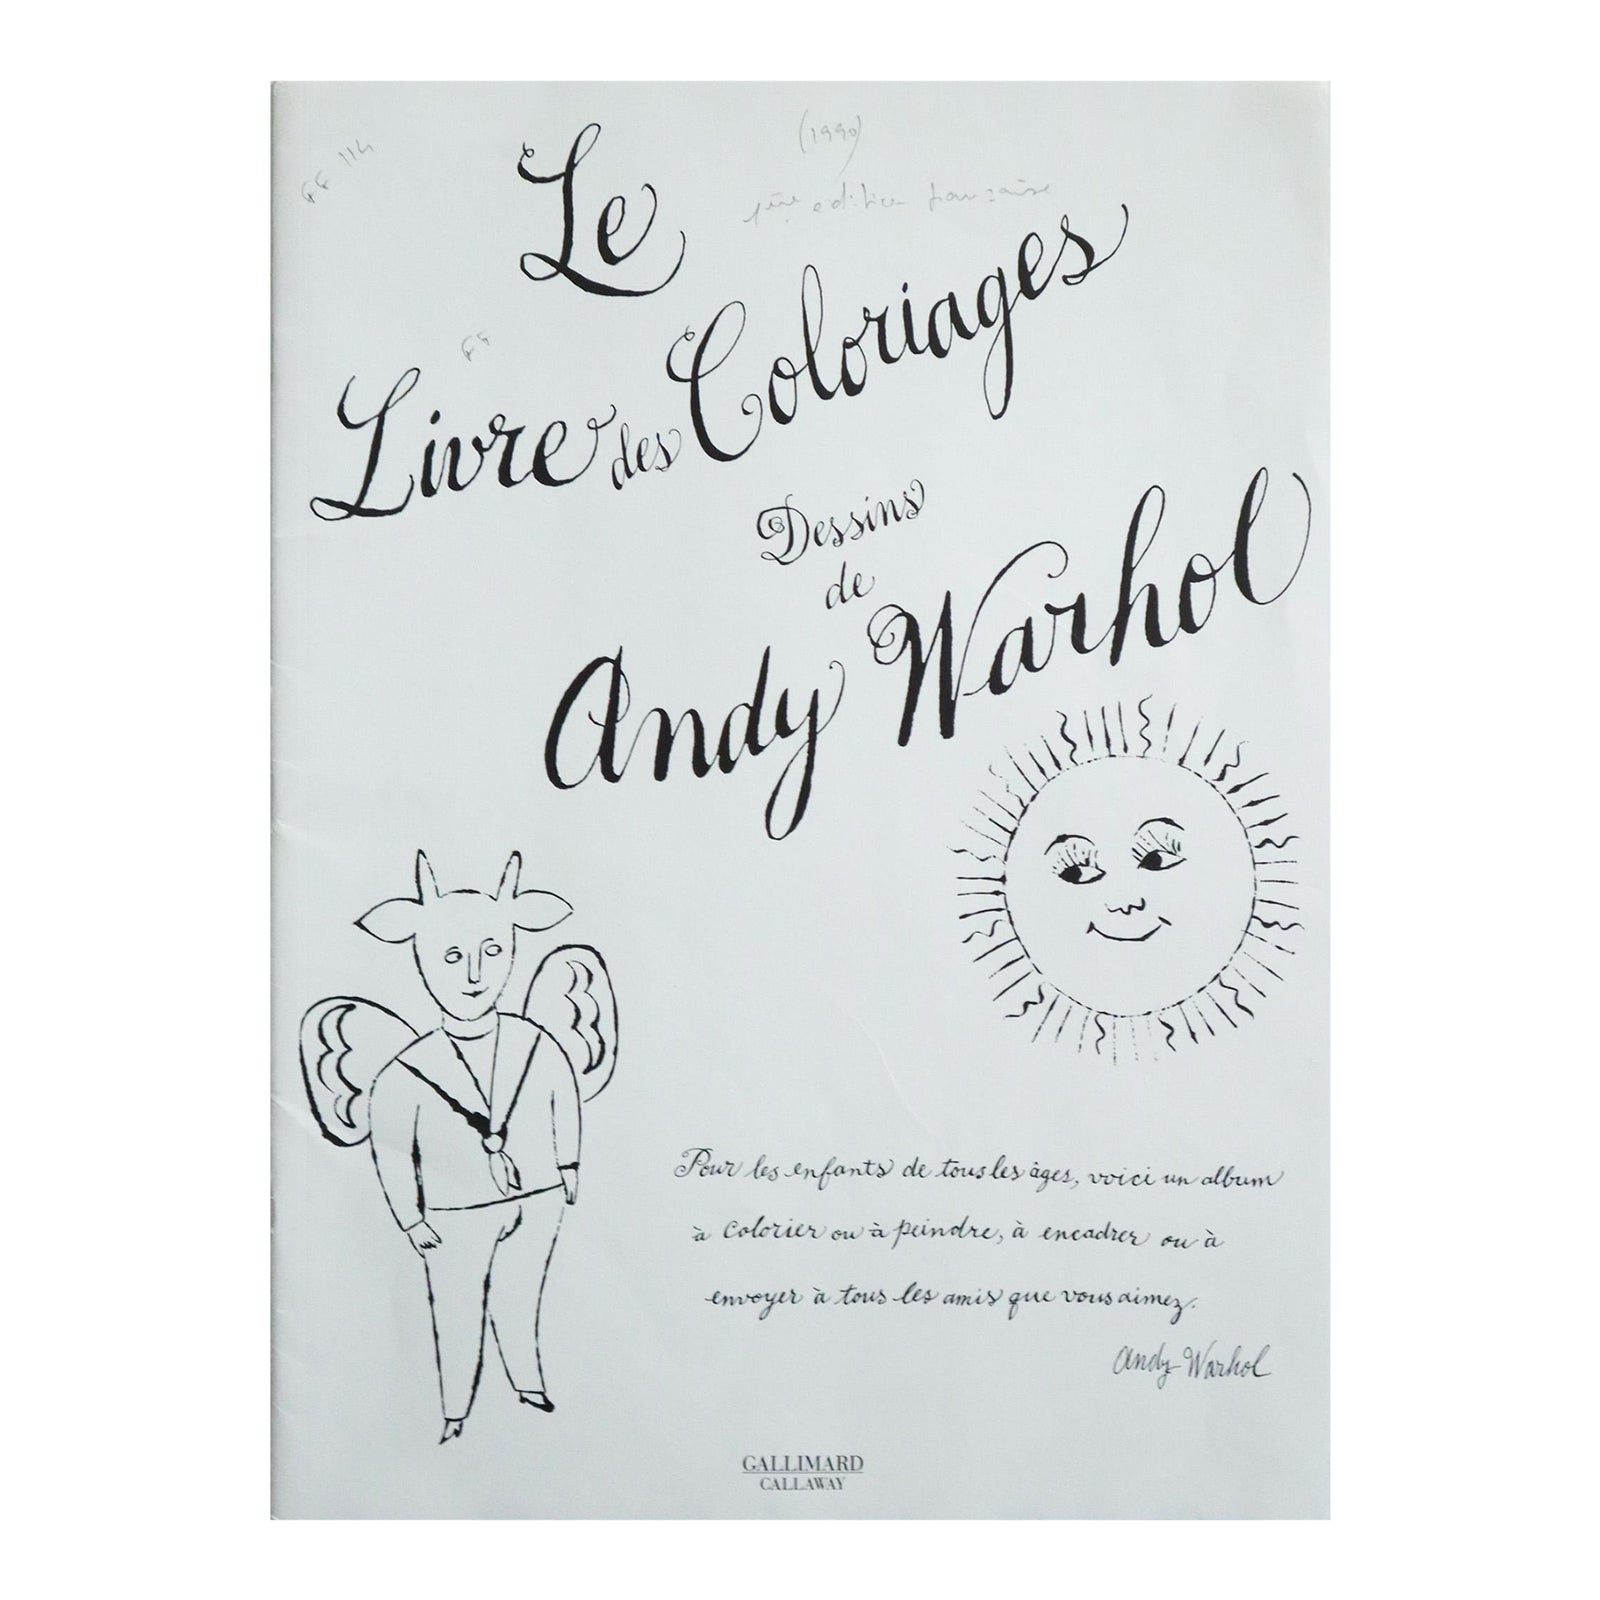 (1990)
1ère édition française
Le
Livre des Coloriages
Dessins
de
Andy Warhol
Pour les enfants de tous les âges, voici un album
à colorier ou à peindre, à encadrer ou à
envoyer à tous les amis que vous aimez.
Andy Warhol
GALLIMARD
CALLAWAY